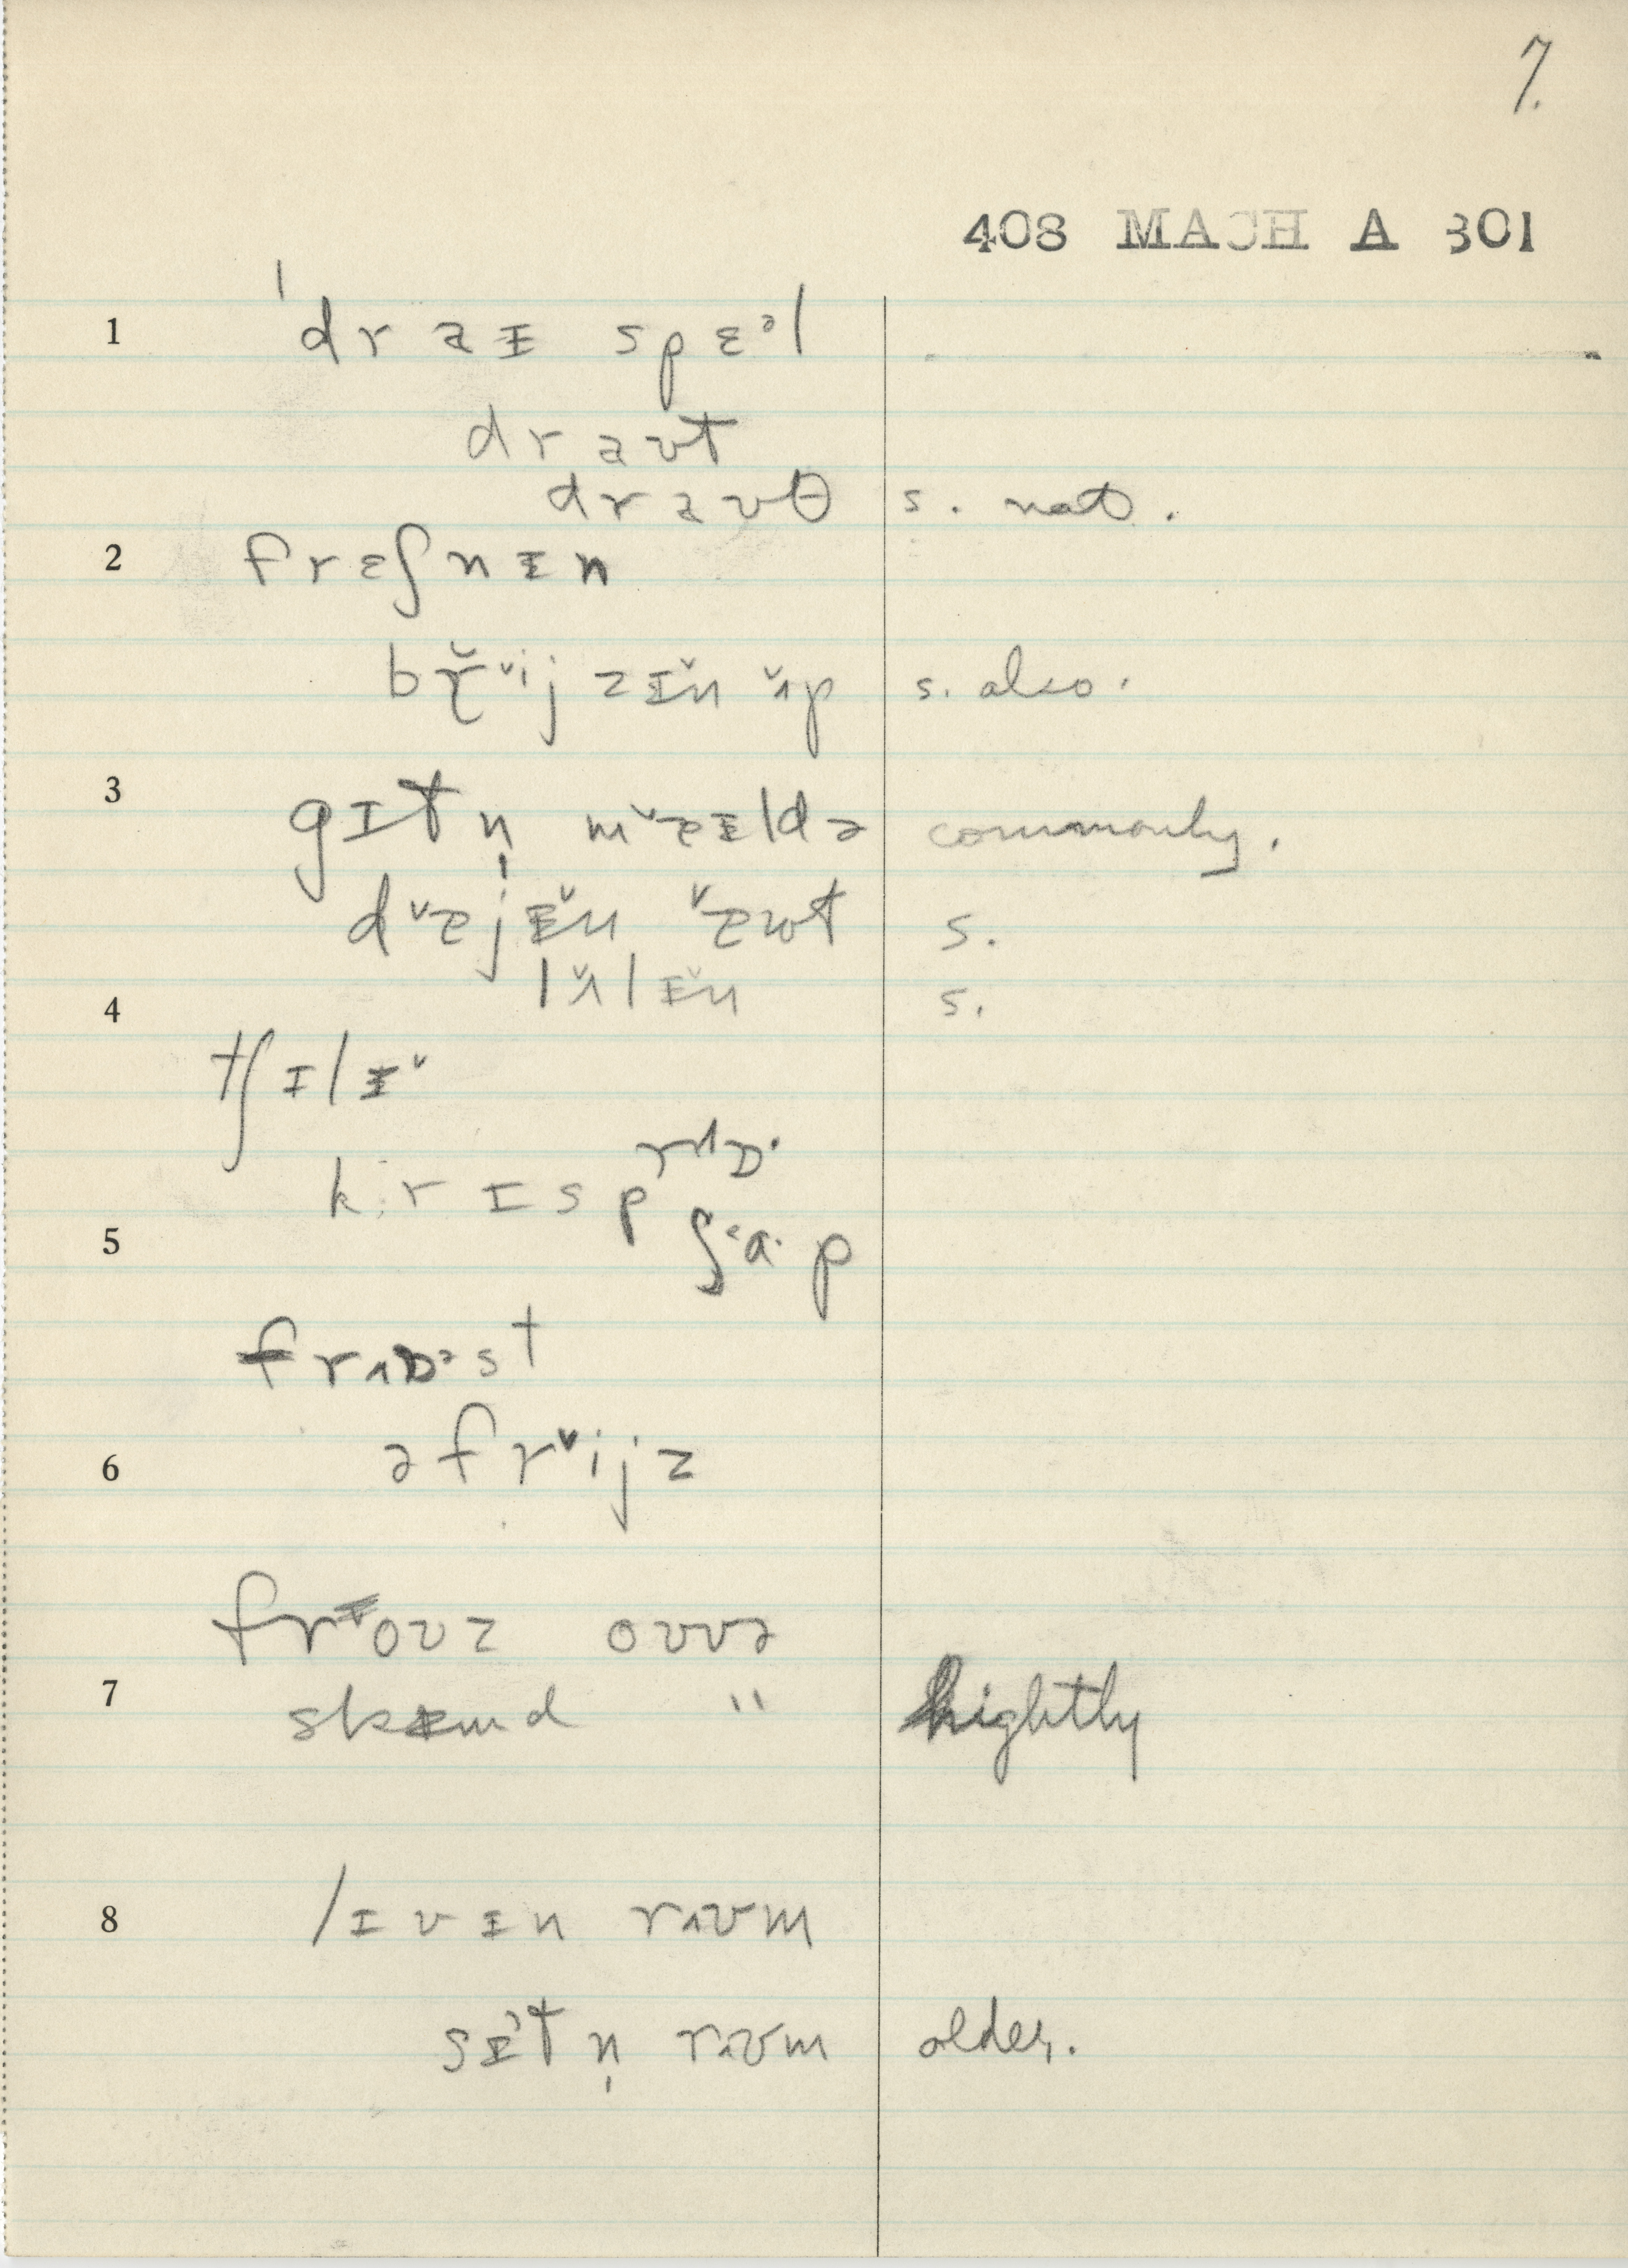 7.
408 MACH A 301
1 ˈdraɪ spɛᵊl
draʊt
draʊθ s. nat.
2 frɛʃnɪn
br̆ᵛijzɪn ʌp s. also.
3 gɪtn̩ mᵛɐɪldə commonly.
dᵛɐjɪn ɐwt s.
lʌlɪn s.
4 tʃɪlɪᵛ
krɪsp rʌɒ·
5 ʃᵊa·p
frʌɒᵊst
6 əfrᵛijz
frɪoʊz oʊvə
7 skɪmd " lightly
8 lɪvɪn rʌʊm
sɪtn̩ rʌʊm older.